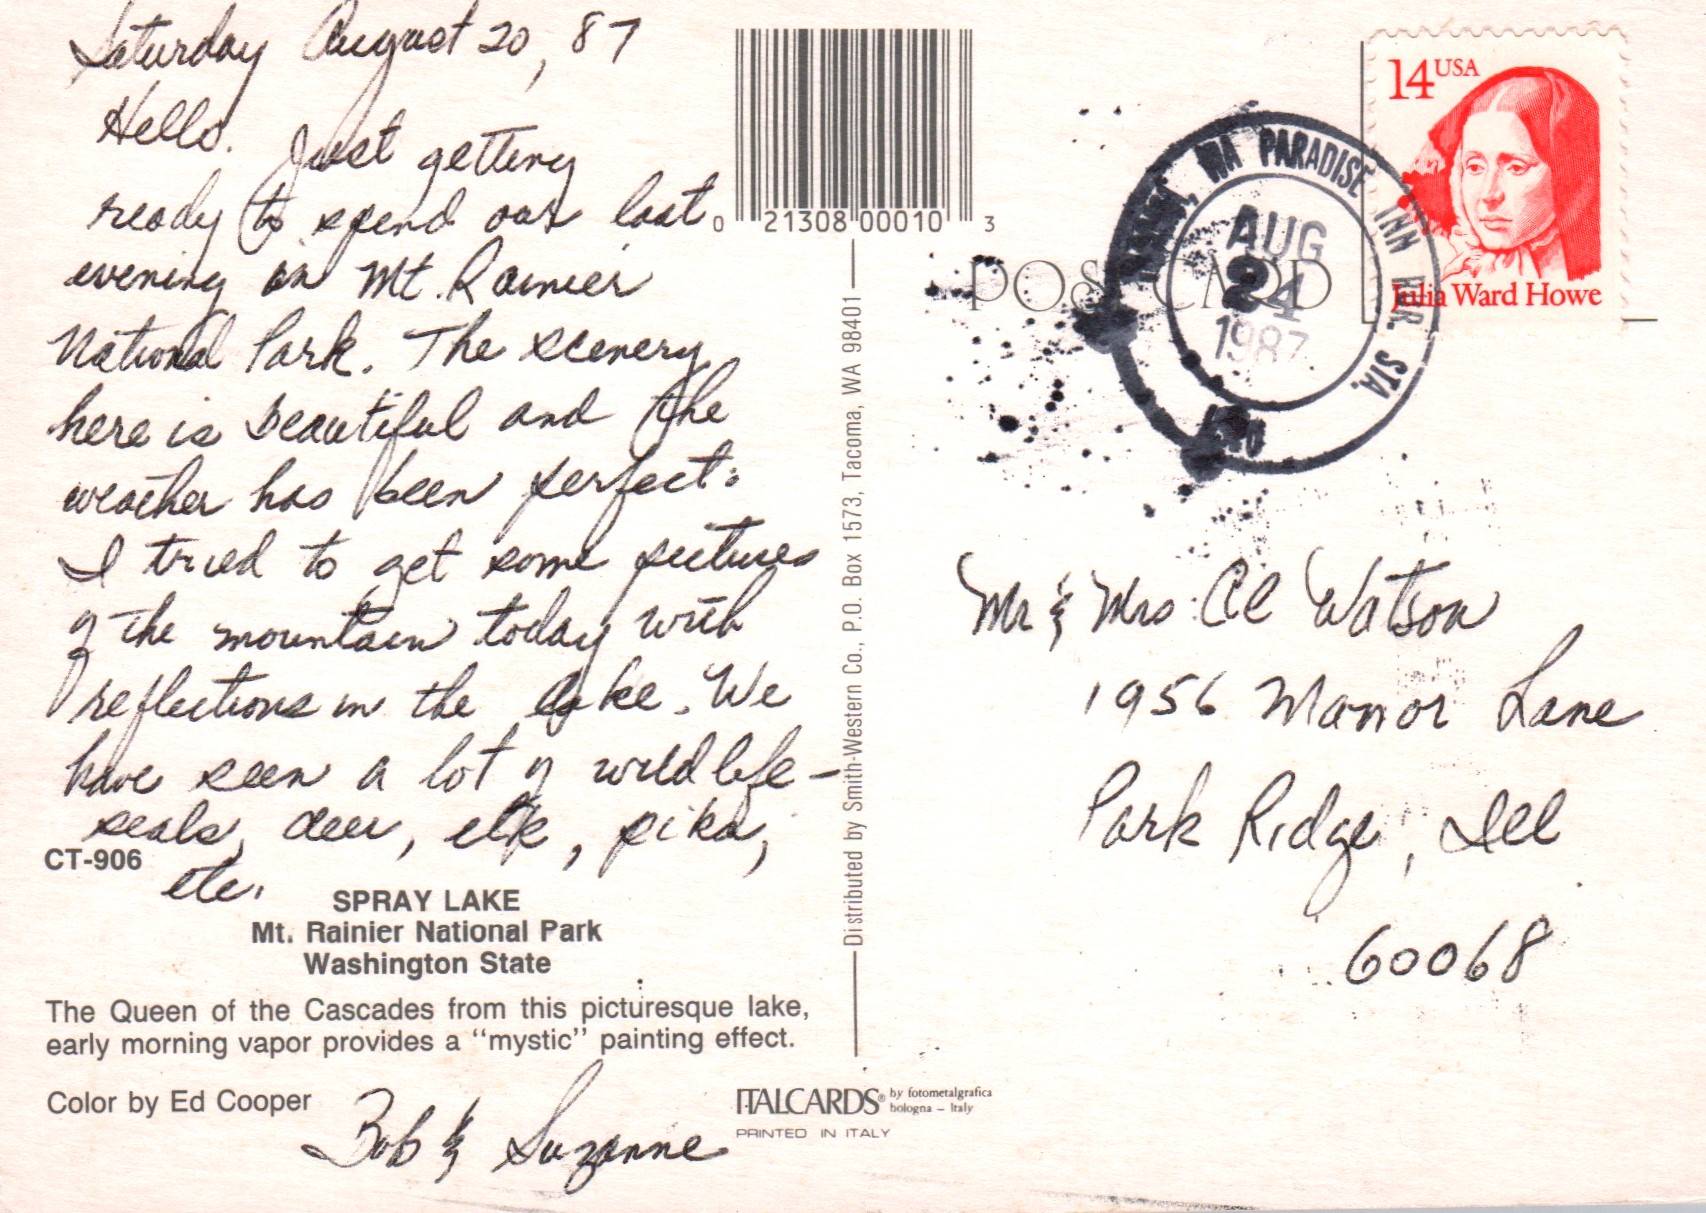 Saturday August 20, 87
Hello.
Just getting
ready to spend our last
evening on Mt. Rainier
National Park. The scenery
here is beautiful and the
weather has been perfect.
I tried to get some pictures
of the mountain today with
reflections in the lake. We
have seen a lot of wildlife -
seals, deer, elk, pika,
etc.
CT-906
SPRAY LAKE
Mt. Rainier National Park
Washington State
The Queen of the Cascades from this picturesque lake,
early morning vapor provides a "mystic" painting effect.
Color by Ed Cooper
Bob & Suzanne
0 21308 00010 3
Distributed by Smith-Western Co., P.O. Box 1573, Tacoma, WA 98401
ITALCARDS® by fotometalgrafica
bologna – Italy
PRINTED IN ITALY
POST CARD
WA PARADISE INN RUR. STA.
AUG
24
1987
14 USA
Julia Ward Howe
Mr & Mrs. Al Watson
1956 Manor Lane
Park Ridge, Ill
60068